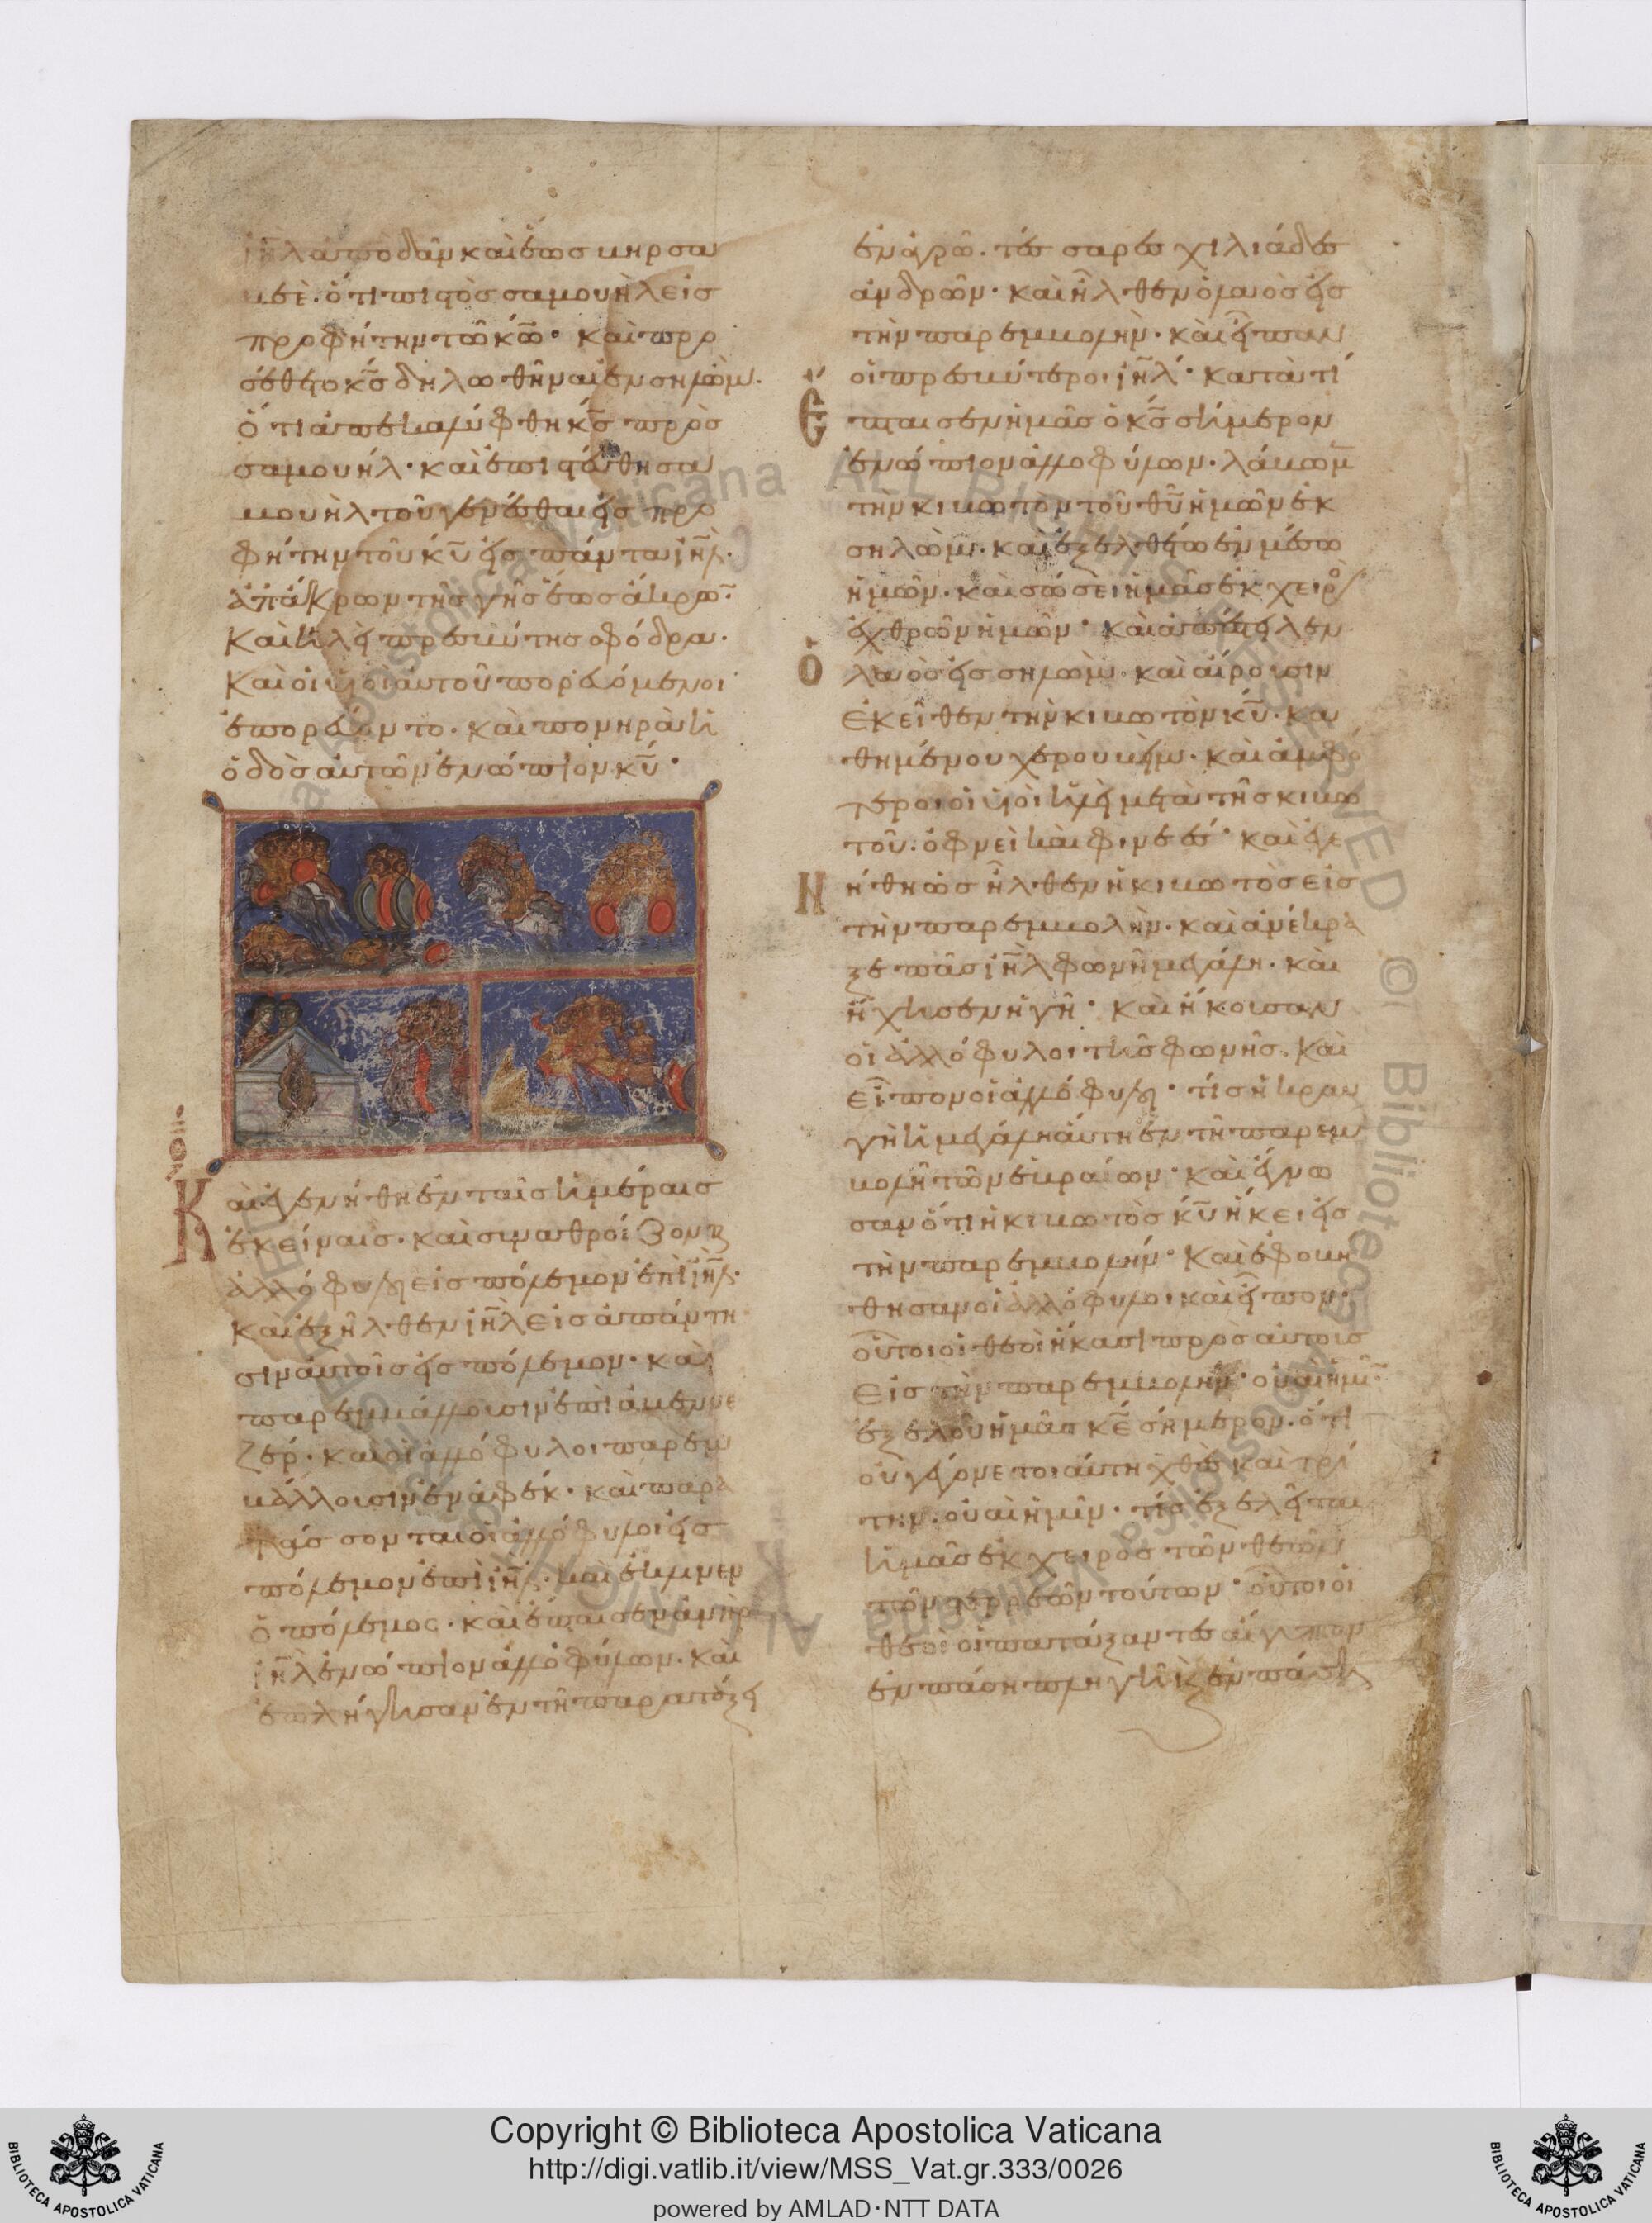 ι̅η̅λ ἀπὸ δὰν καὶ ἕως βηρσα
βεέ· ὅτι πιστὸς σαμουὴλ εἰς
προφήτην τῶ κ̅ω̅· καὶ προ
σέθετο κ̅ς̅ δηλωθῆναι ἐν σηλὼμ·
ὅτι ἀπεκαλύφθη κ̅ς̅ πρὸς
σαμουήλ· καὶ ἐπιστεύθη σα
μουὴλ τοῦ γενέσθαι εἰς προ
φήτην τοῦ κ̅υ̅ εἰς πάντα ι̅η̅λ·
ἀπάκρων τῆς γῆς ἕως ἄκρω̅·
Καὶ ἡλεὶ πρεσβύτης σφόδρα·
Καὶ οἱ υἱοὶ αὐτοῦ πορευόμενοι
ἐπορεύοντο· καὶ πονηρὰ ἡ
ὁδὸς αὐτῶν ἐνώπιον κ̅υ̅·
Καὶ ἐγενήθη ἐν ταῖς ἡμέραις
ἐκείναις· καὶ συναθροίζονται
ἀλλόφυλοι εἰς πόλεμον ἐπὶ ι̅η̅λ·
καὶ ἐξῆλθεν ι̅η̅λ εἰς ἀπάντη
σιν αὐτοῖς εἰς πόλεμον· καὶ
παρεμβάλλουσιν ἐπὶ ἀβεννε
ζέρ· καὶ οἱ ἀλλόφυλοι παρεμ
βάλλουσιν ἐν ἀφέκ· καὶ παρα
τάσσονται οἱ ἀλλόφυλοι εἰς
πόλεμον ἐπὶ ι̅η̅λ· καὶ ἔκλινεν
ὁ πόλεμος· καὶ ἔπταισεν ἀνὴρ
ι̅η̅λ ἐνώπιον ἀλλοφύλων· καὶ
ἐπλήγησαν ἐν τῆ παρατάξει
ἐν ἀγρῶ· τέσσαρες χιλιάδες
ἀνδρῶν· καὶ ἦλθεν ὁ λαὸς εἰς
τὴν παρεμβολήν· καὶ εἶπαν
οἱ πρεσβύτεροι ι̅η̅λ· κατὰ τί
Ἔπταισεν ἡμᾶς ὁ κ̅ς̅ σήμερον
ἐνώπιον ἀλλοφύλων· λάβωμ̅
τὴν κιβωτὸν τοῦ θ̅υ̅ ἡμῶν ἐκ
σηλὼμ· καὶ ἐξελθέτω ἐν μέσω
ἡμῶν· καὶ σώσει ἡμᾶς ἐκ χειρὸς
ἐχθρῶν ἡμῶν· καὶ ἀπέστειλεν
Ὁ λαὸς εἰς σηλὼμ· καὶ αἴρουσιν
ἐκεῖθεν τὴν κιβωτὸν κ̅υ̅· κα
θημένου χερουβίμ· καὶ ἀμφό
τεροι οἱ υἱοὶ ἡλεὶ μετὰ τῆς κιβω
τοῦ· ὀφνεὶ καὶ φινεές· καὶ ἐγε
Νήθη ὡς ἦλθεν ἡ κιβωτὸς εἰς
τὴν παρεμβολὴν· καὶ ἀνέκρα
ξε πᾶς ι̅η̅λ φωνῆ μεγάλη· καὶ
ἤχησεν ἡ γῆ· καὶ ἤκουσαν
οἱ ἀλλόφυλοι τῆς φωνῆς· καὶ
εἶπον οἱ ἀλλόφυλοι· τίς ἡ κραυ
γὴ ἡ μεγάλη αὕτη ἐν τῆ παρεμ
βολῆ τῶν ἑβραίων· καὶ ἔγνω
σαν ὅτι ἡ κιβωτὸς κ̅υ̅ ἥκει εἰς
τὴν παρεμβολήν· καὶ ἐφοβή
θησαν οἱ ἀλλόφυλοι καὶ εἶπον·
οὗτοι οἱ θεοὶ ἥκασι πρὸς αὐτοὺς
εἰς τὴν παρεμβολήν· οὐαὶ ἡμῖ̅ν·
ἐξελοῦ ἡμᾶς κ̅ε̅ σήμερον· ὅτι
οὐ γέγονε τοιαύτη ἐχθὲς καὶ τρί
την· οὐαὶ ἡμῖν· τίς ἐξελεῖται
ἡμᾶς ἐκ χειρὸς τῶν θεῶν
τῶν στερεῶν τούτων· οὗτοι οἱ
θεοὶ οἱ πατάξαντες αἴγυπτον
ἐν πάση πληγῆ κ ἐν πάση
Copyright © Biblioteca Apostolica Vaticana
http://digi.vatlib.it/view/MSS_Vat.gr.333/0026
powered by AMLAD·NTT DATA